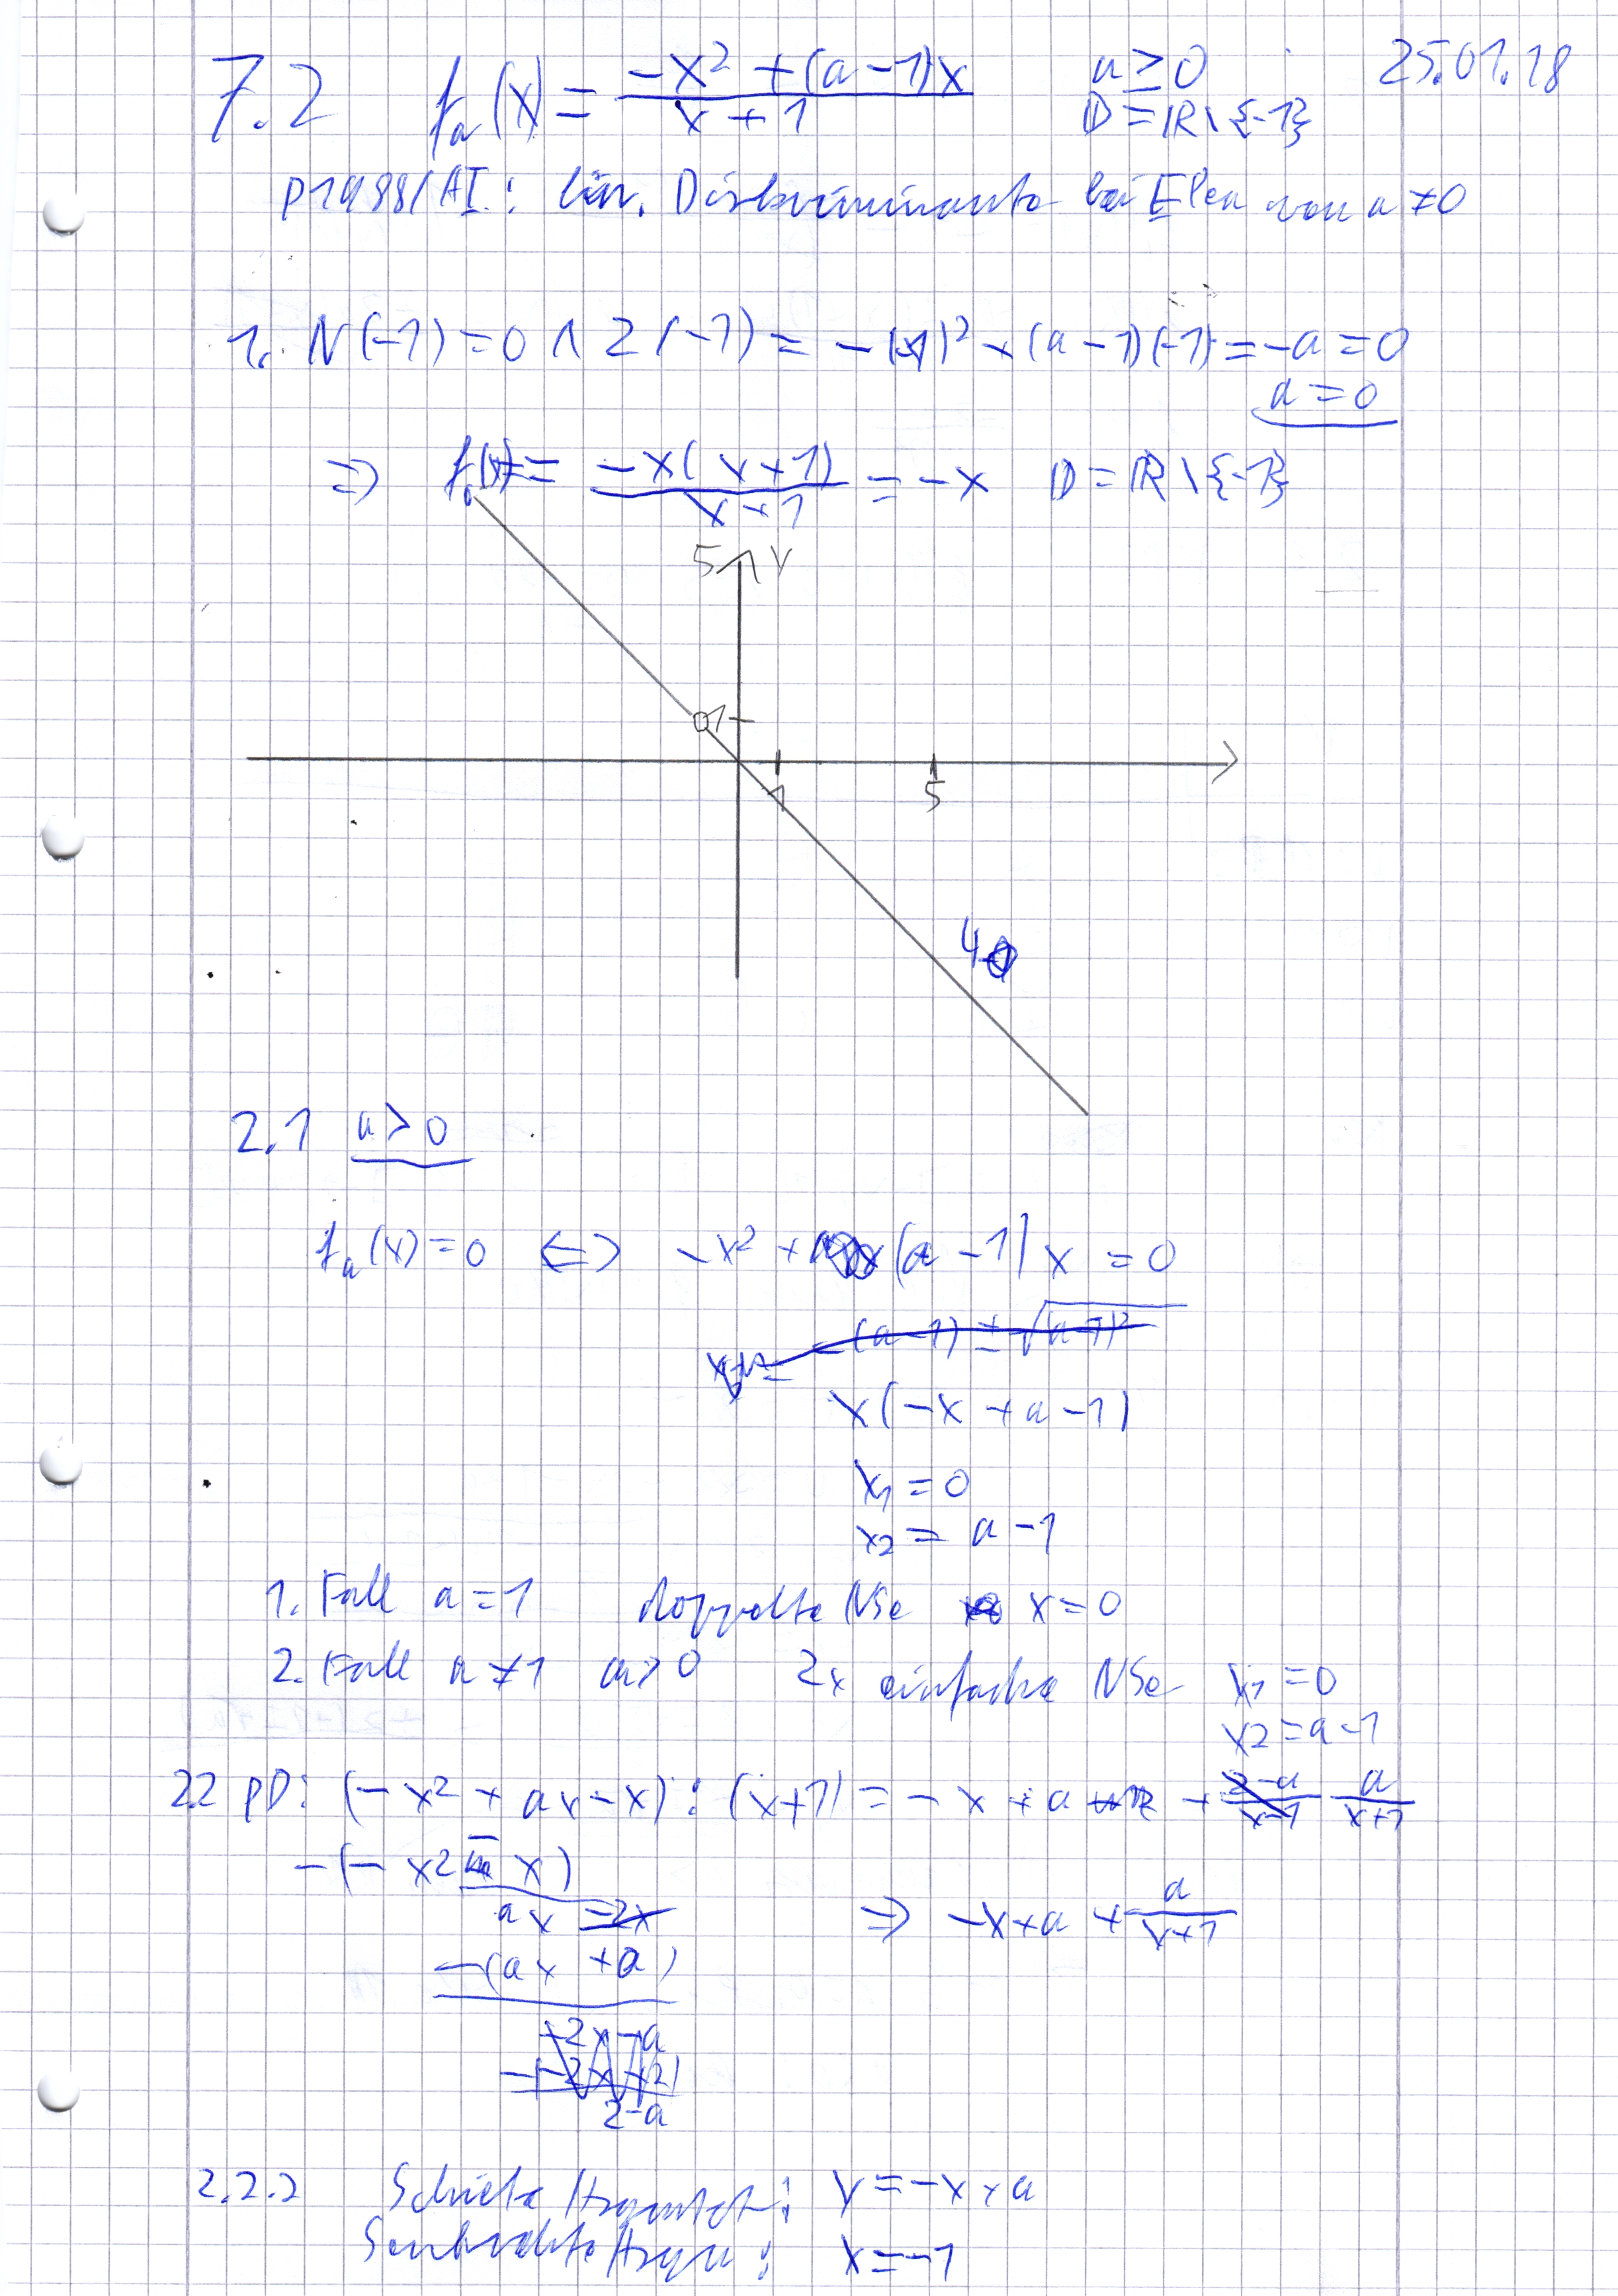 7.2 fₐ(x) = (-x² + (a-1)x)/(x+1) a ≥ 0 25.01.18
D = ℝ\{-1}
P1988/AI.: lin. Diskriminante bei von a ≠ 0
1. N(-1) = 0 ∧ Z(-1) = -(-1)² + (a-1)(-1) = -a = 0
a = 0
⇒ f₀(x) = (-x(x+1))/(x+1) = -x D = ℝ\{-1}
5 y
1
1 5
2.1 a > 0
fₐ(x) = 0 ⇔ -x² + (a-1)x = 0
-(a-1) ± √(a-1)²
x(-x + a - 1)
x₁ = 0
x₂ = a - 1
1. Fall a = 1 doppelte NSe x = 0
2. Fall a ≠ 1 a > 0 2x einfache NSe x₁ = 0
x2 = a - 1
2.2 PD: (-x² + ax - x) : (x+1) = -x + a - a/(x+1)
-(-x² - x)
ax -2x
-(ax + a)
-2x - a
-(-2x - 2)
2 - a
⇒ -x + a + a/(x+1)
2.2.2 Schiefe Asymptot: y = -x + a
Senkrechte Asym: x = -1